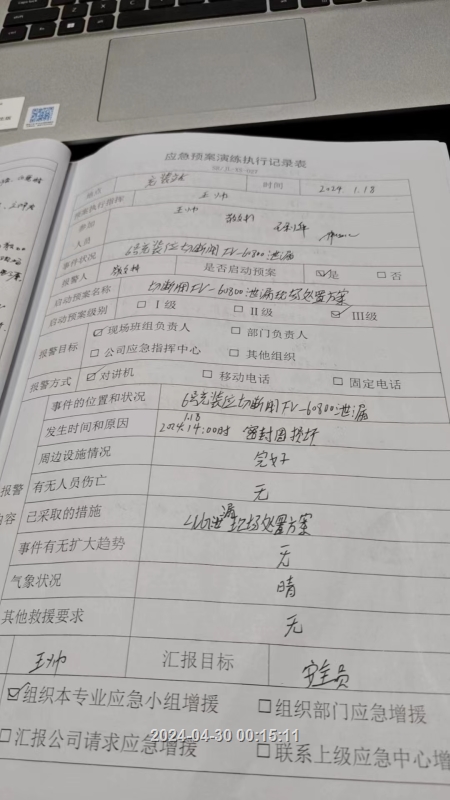 应急预案演练执行记录表
地点 充装台 时间 2024 1.18
预案执行指挥 王帅
参加人员 王帅
事件状况 6号充装区切断阀FV-60800泄漏
报警人 是否启动预案 ☑是 □否
启动预案名称 切断阀FV-60800泄漏现场处置方案
启动预案级别 □I级 □II级 ☑III级
报警目标 ☑现场班组负责人 □部门负责人
□公司应急指挥中心 □其他组织
报警方式 ☑对讲机 □移动电话 □固定电话
事件的位置和状况 6号充装区切断阀FV-60800泄漏
发生时间和原因 2024.1.18 14:00时 密封圈损坏
周边设施情况 完好
报警内容 有无人员伤亡 无
已采取的措施 LNG泄漏现场处置方案
事件有无扩大趋势 无
气象状况 晴
其他救援要求 无
王帅 汇报目标 安全员
☑组织本专业应急小组增援 □组织部门应急增援
□汇报公司请求应急增援 □联系上级应急中心增
2024-04-30 00:15:11